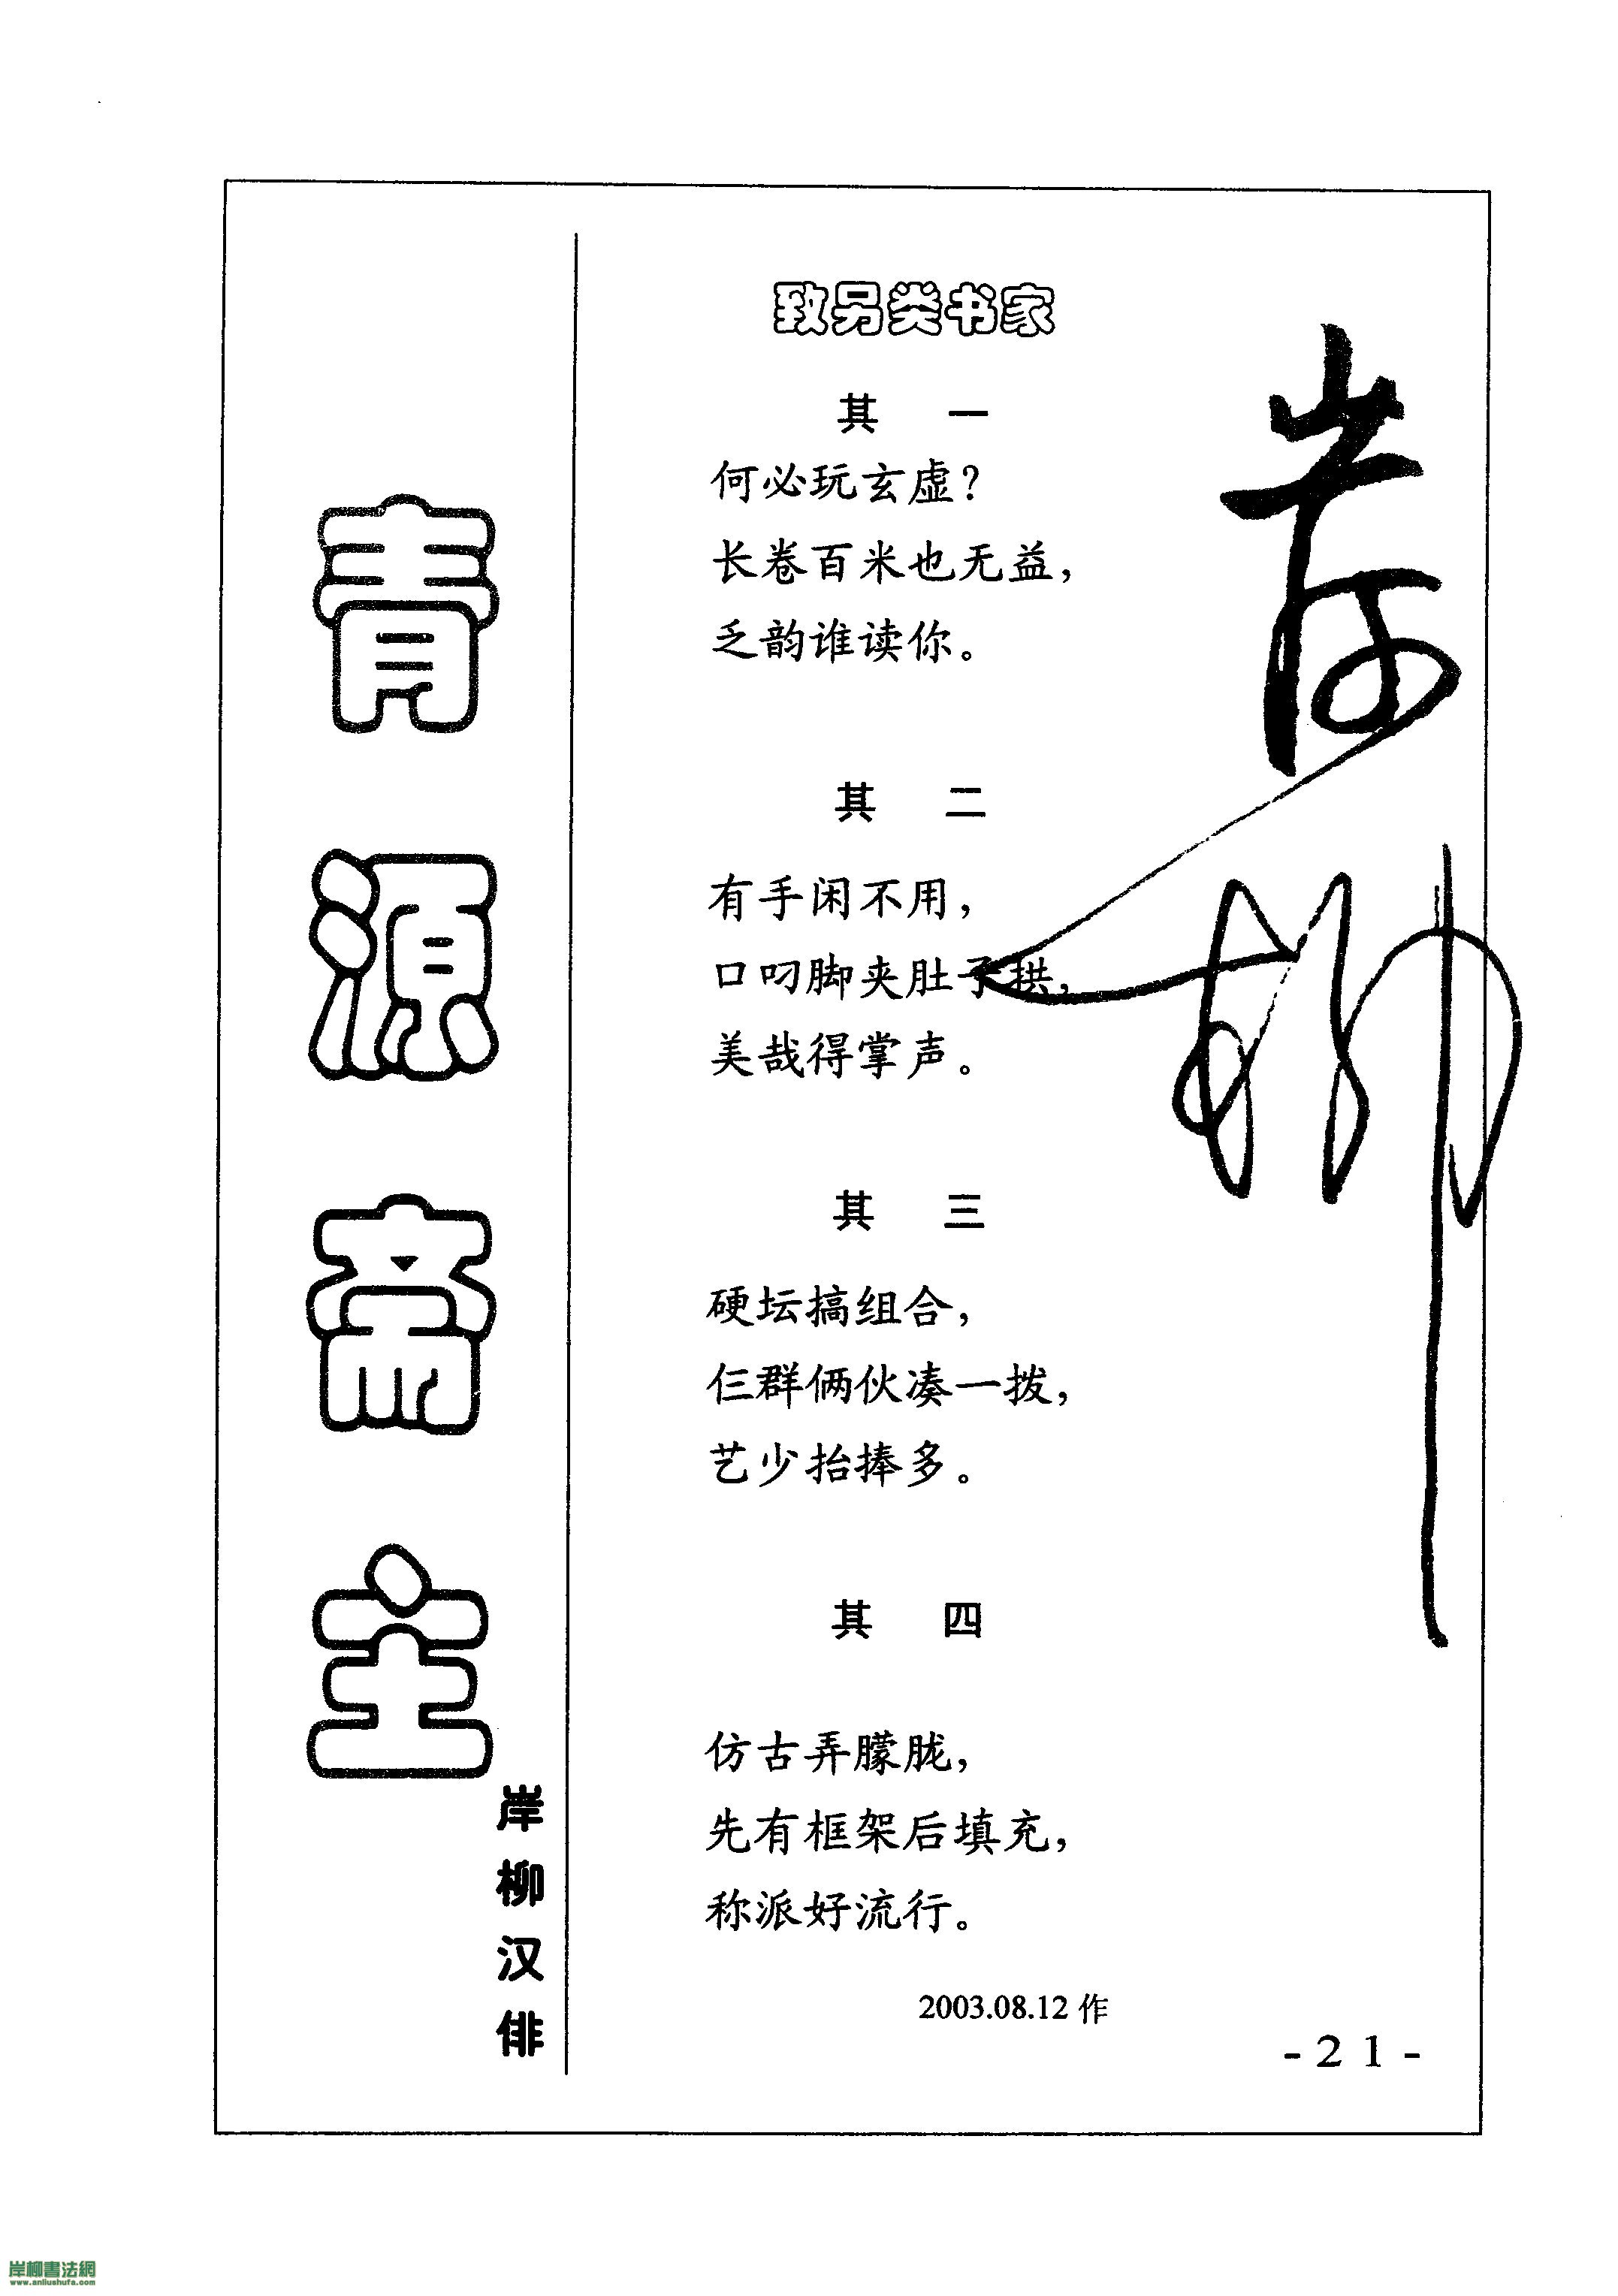 青源斋主
岸柳汉俳
致另类书家
其 一
何必玩玄虚？
长卷百米也无益，
乏韵谁读你。
其 二
有手闲不用，
口叼脚夹肚子拱，
美哉得掌声。
其 三
硬坛搞组合，
仨群俩伙凑一拨，
艺少抬捧多。
其 四
仿古弄朦胧，
先有框架后填充，
称派好流行。
2003.08.12 作
-21-
岸柳
岸柳書法網
www.anliushufa.com